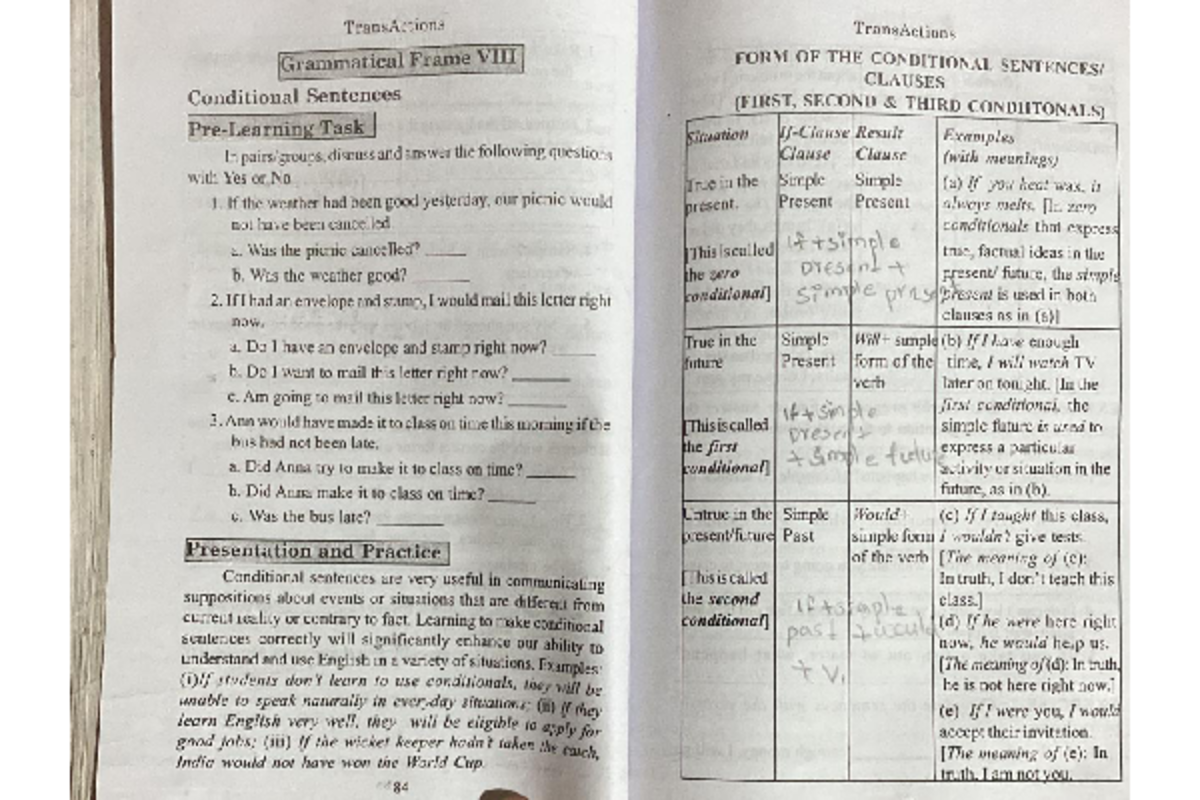 TransActions
Grammatical Frame VIII
Conditional Sentences
Pre-Learning Task
In pairs/groups, discuss and answer the following questions
with Yes or No
1. If the weather had been good yesterday, our picnic would
not have been cancelled.
a. Was the picnic cancelled? _____
b. Was the weather good? _____
2. If I had an envelope and stamp, I would mail this letter right
now.
a. Do I have an envelope and stamp right now? _____
b. Do I want to mail this letter right now? _____
c. Am going to mail this letter right now? _____
3. Ann would have made it to class on time this morning if the
bus had not been late.
a. Did Anna try to make it to class on time? _____
b. Did Anna make it to class on time? _____
c. Was the bus late? _____
Presentation and Practice
Conditional sentences are very useful in communicating
suppositions about events or situations that are different from
current reality or contrary to fact. Learning to make conditional
sentences correctly will significantly enhance our ability to
understand and use English in a variety of situations. Examples:
(i) If students don't learn to use conditionals, they will be
unable to speak naturally in every-day situations; (ii) if they
learn English very well, they will be eligible to apply for
good jobs; (iii) If the wicket keeper hadn't taken the catch,
India would not have won the World Cup.
84
TransActions
FORM OF THE CONDITIONAL SENTENCES/
CLAUSES
(FIRST, SECOND & THIRD CONDIITONALS)
Situation
If-Clause
Clause
Result
Clause
Examples
(with meanings)
True in the
present.
[This is called
the zero
conditional]
Simple
Present
If + simple
present +
simple present
Simple
Present
(a) If you heat wax, it
always melts. [In zero
conditionals that express
true, factual ideas in the
present/ future, the simple
present is used in both
clauses as in (a)]
True in the
future
[This is called
the first
conditional]
Simple
Present
if + simple
present
+ simple future
Will+ simple
form of the
verb
(b) If I have enough
time, I will watch TV
later on tonight. [In the
first conditional, the
simple future is used to
express a particular
activity or situation in the
future, as in (b).
Untrue in the
present/future
[This is called
the second
conditional]
Simple
Past
if + simple
past + would
+ V.
Would+
simple form
of the verb
(c) If I taught this class,
I wouldn't give tests.
[The meaning of (c):
In truth, I don't teach this
class.]
(d) If he were here right
now, he would help us.
[The meaning of (d): In truth,
he is not here right now.]
(e) If I were you, I would
accept their invitation.
[The meaning of (e): In
truth, I am not you.